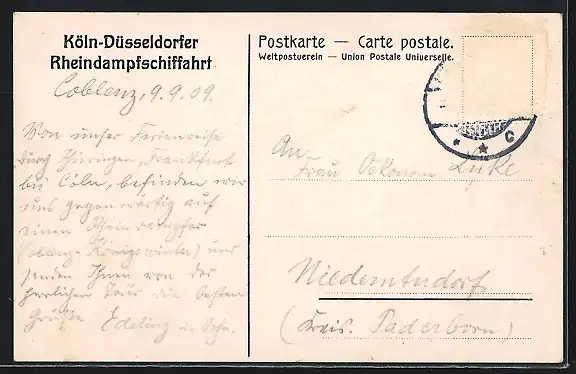 Köln-Düsseldorfer
Rheindampfschiffahrt
Coblenz, 9.9.09.
Von unser Ferienreise
durch Thüringen, Frankfurt
bis Cöln, befinden wir
uns gegenwärtig auf
einen Rheindampfer
(Coblenz-Königswinter) und
senden Ihnen von der
herrlichen Tour die besten
Grüße Edeling u. Sohn.
Postkarte — Carte postale.
Weltpostverein — Union Postale Universelle.
* * C
An
Frau Oekonom Lüke
Niederntudorf
(Kreis. Paderborn)